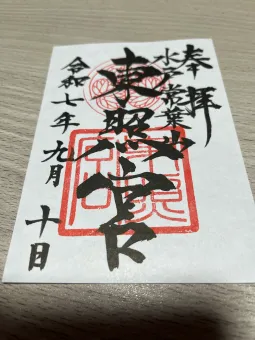 奉拝
水戸常葉山
東照宮
令和七年九月
十日